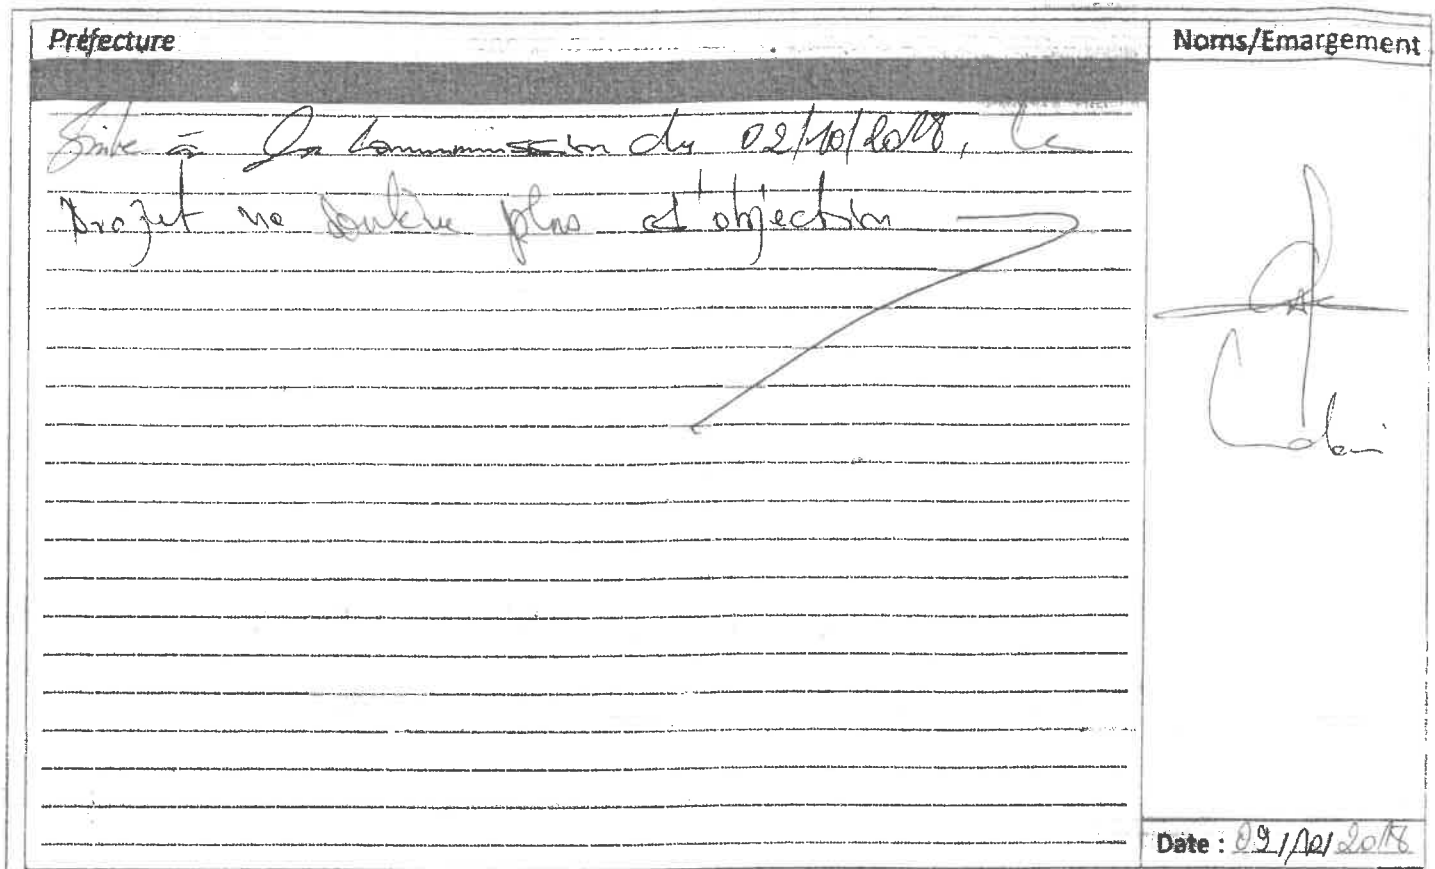 Préfecture
Noms/Emargement
Suite à la Commission du 02/10/2018, le
Projet ne soulève plus d'objection
Date : 09/10/2018